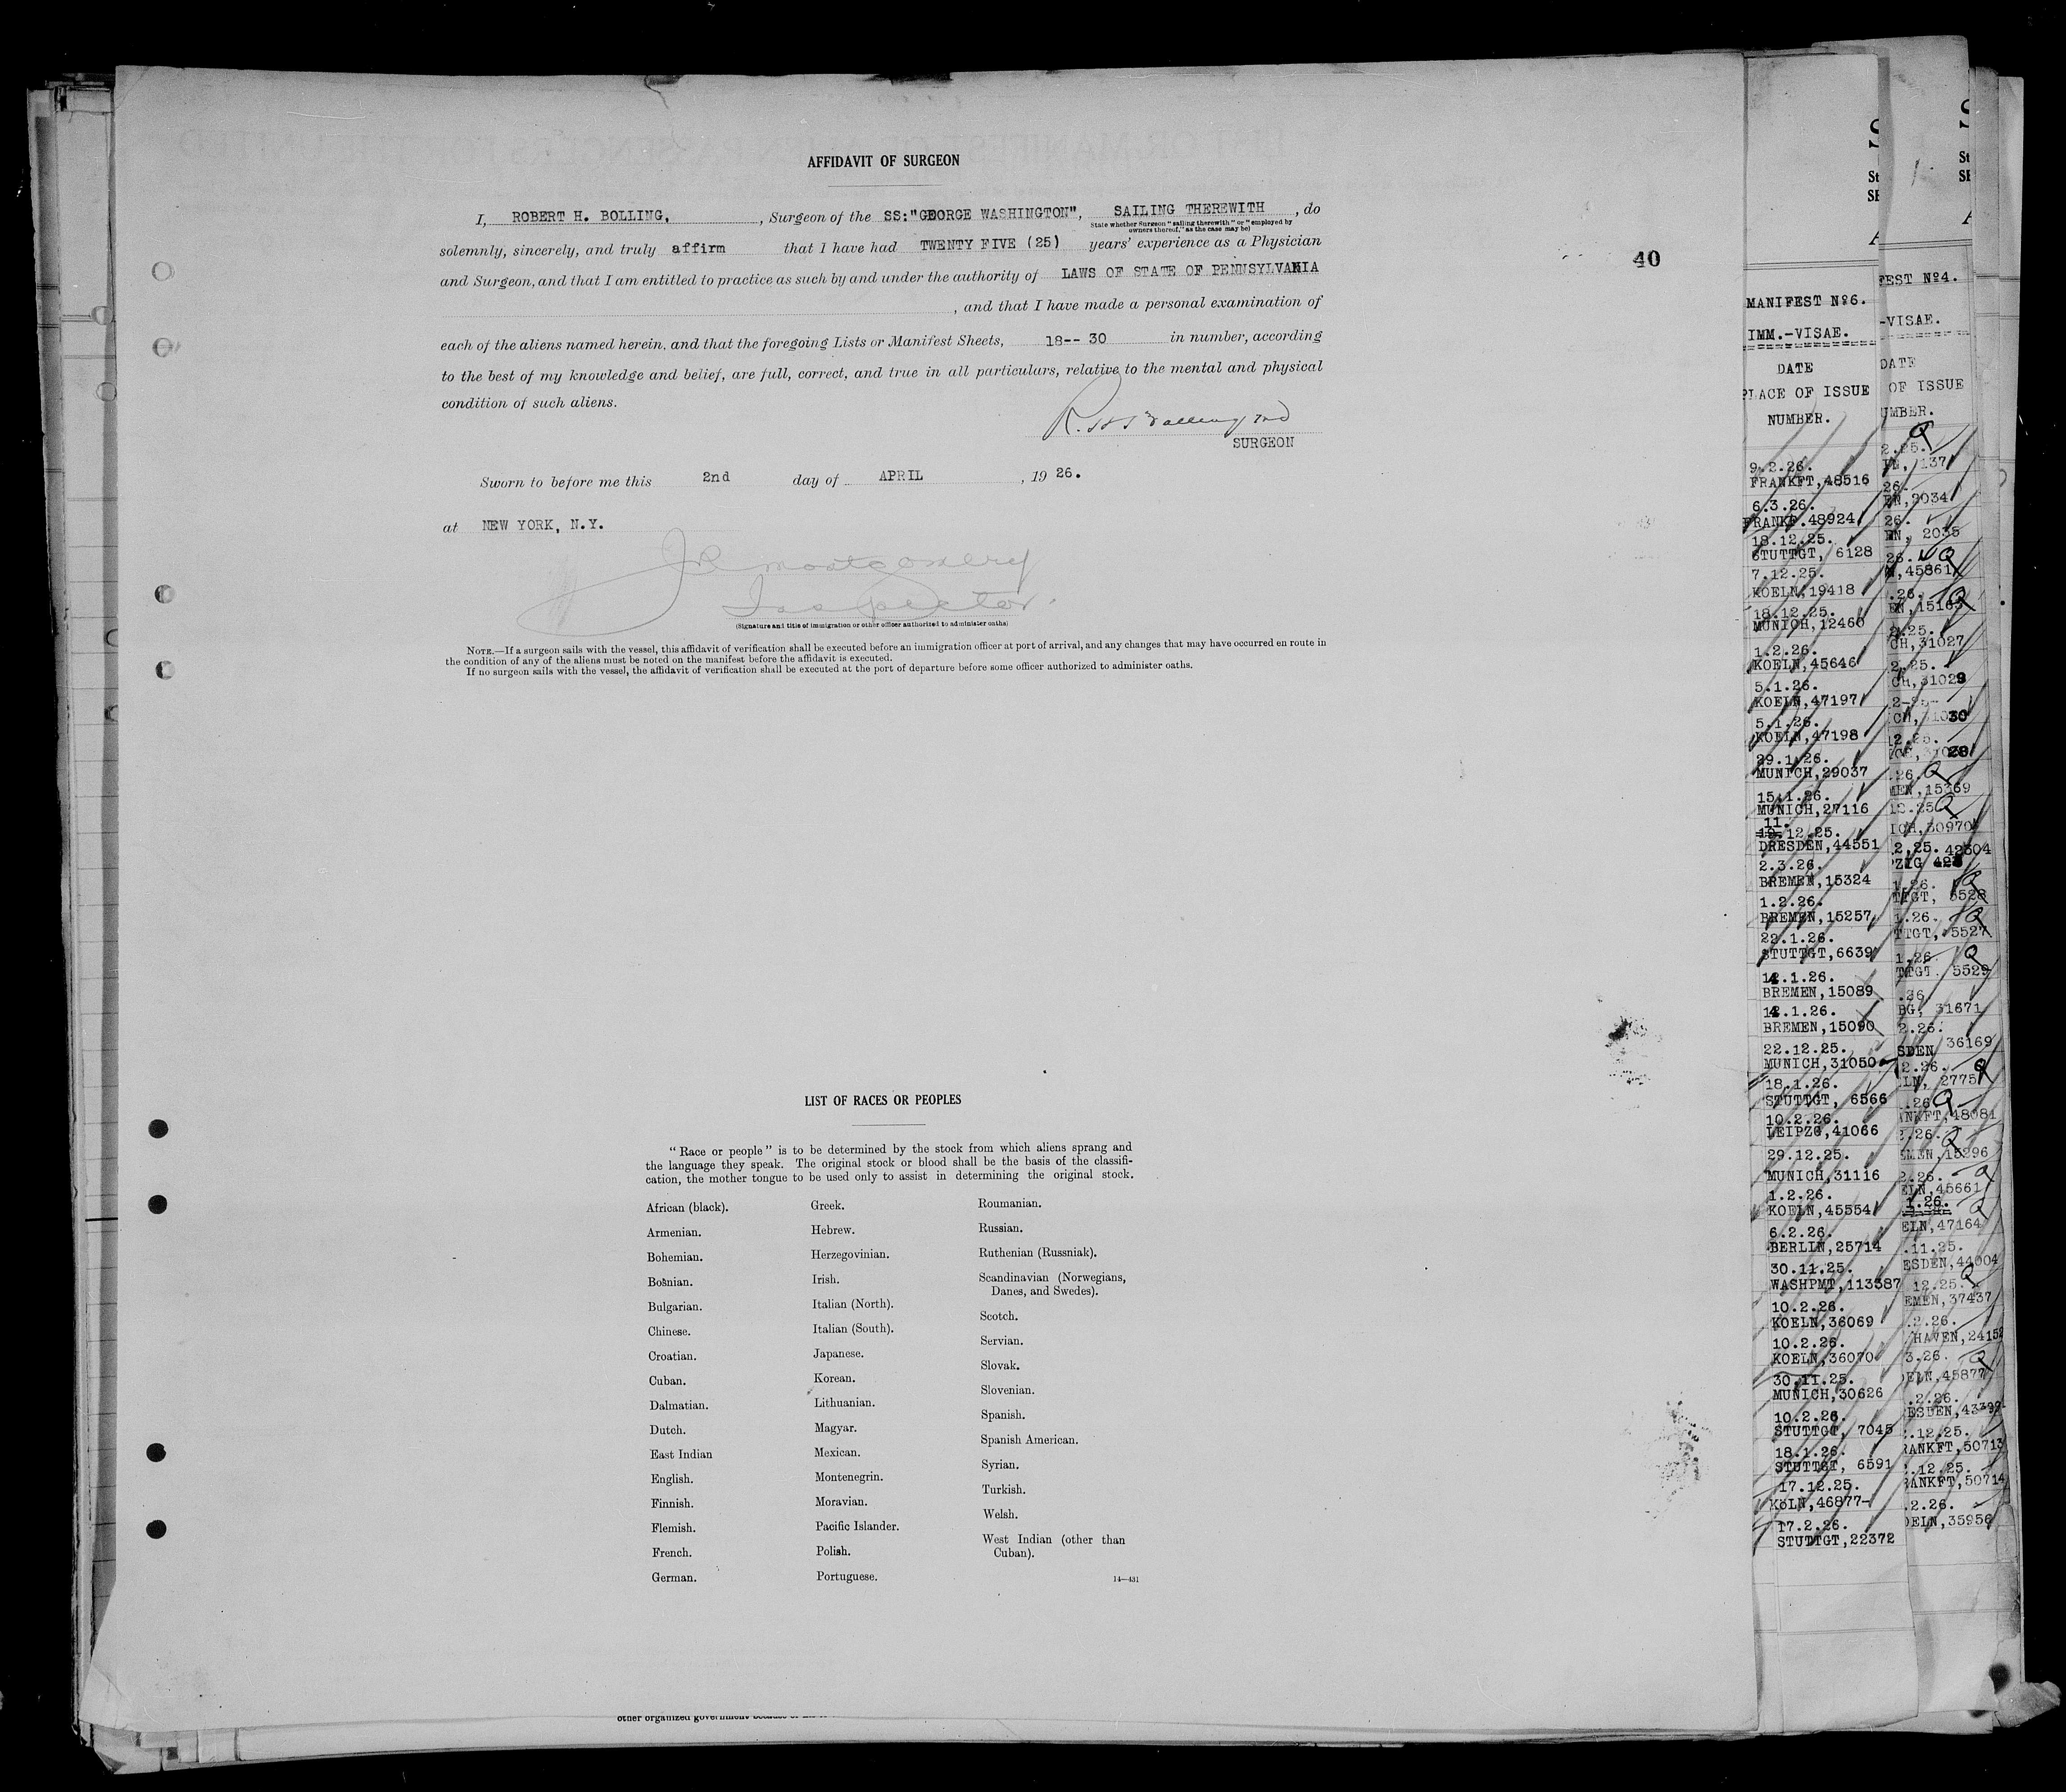 AFFIDAVIT OF SURGEON
I, ROBERT H. BOLLING, , Surgeon of the SS:"GEORGE WASHINGTON", SAILING THEREWITH , do
State whether Surgeon "sailing therewith" or "employed by
owners thereof," as the case may be)
solemnly, sincerely, and truly affirm that I have had TWENTY FIVE (25) years' experience as a Physician
and Surgeon, and that I am entitled to practice as such by and under the authority of LAWS OF STATE OF PENNSYLVANIA
, and that I have made a personal examination of
each of the aliens named herein, and that the foregoing Lists or Manifest Sheets, 18-- 30 in number, according
to the best of my knowledge and belief, are full, correct, and true in all particulars, relative to the mental and physical
condition of such aliens.
R. H. Bolling MD
SURGEON
Sworn to before me this 2nd day of APRIL , 19 26.
at NEW YORK, N.Y.
Montgomery
Inspector.
(Signature and title of immigration or other officer authorized to administer oaths)
NOTE.—If a surgeon sails with the vessel, this affidavit of verification shall be executed before an immigration officer at port of arrival, and any changes that may have occurred en route in
the condition of any of the aliens must be noted on the manifest before the affidavit is executed.
If no surgeon sails with the vessel, the affidavit of verification shall be executed at the port of departure before some officer authorized to administer oaths.
40
LIST OF RACES OR PEOPLES
"Race or people" is to be determined by the stock from which aliens sprang and
the language they speak. The original stock or blood shall be the basis of the classifi-
cation, the mother tongue to be used only to assist in determining the original stock.
African (black).
Armenian.
Bohemian.
Bosnian.
Bulgarian.
Chinese.
Croatian.
Cuban.
Dalmatian.
Dutch.
East Indian
English.
Finnish.
Flemish.
French.
German.
Greek.
Hebrew.
Herzegovinian.
Irish.
Italian (North).
Italian (South).
Japanese.
Korean.
Lithuanian.
Magyar.
Mexican.
Montenegrin.
Moravian.
Pacific Islander.
Polish.
Portuguese.
Roumanian.
Russian.
Ruthenian (Russniak).
Scandinavian (Norwegians,
Danes, and Swedes).
Scotch.
Servian.
Slovak.
Slovenian.
Spanish.
Spanish American.
Syrian.
Turkish.
Welsh.
West Indian (other than
Cuban).
14—431
other organized government because of
MANIFEST Nº6.
IMM.-VISAE.
DATE
PLACE OF ISSUE
NUMBER.
9.2.26.
FRANKFT,48516
6.3.26.
FRANKF.48924
18.12.25.
STUTTGT, 6128
7.12.25.
KOELN,19418
18.12.25.
MUNICH,12460
1.2.26.
KOELN,45646
5.1.26.
KOELN,47197
5.1.26.
KOELN,47198
29.1.26.
MUNICH,29037
15.1.26.
MUNICH,27116
11.
12.25.
DRESDEN,44551
2.3.26.
BREMEN,15324
1.2.26.
BREMEN,15257
22.1.26.
STUTTGT,6639
12.1.26.
BREMEN,15089
12.1.26.
BREMEN,15090
22.12.25.
MUNICH,31050
18.1.26.
STUTTGT, 6566
10.2.26.
LEIPZG,41066
29.12.25.
MUNICH,31116
1.2.26.
KOELN,45554
6.2.26.
BERLIN,25714
30.11.25.
WASHPMT,113387
10.2.26.
KOELN,36069
10.2.26.
KOELN,36070
30.11.25.
MUNICH,30626
10.2.26.
STUTTGT, 7045
18.1.26.
STUTTGT, 6591
17.12.25.
KöLN,46877-
17.2.26.
STUTTGT,22372
FEST Nº4.
-VISAE.
DATE
OF ISSUE
UMBER.